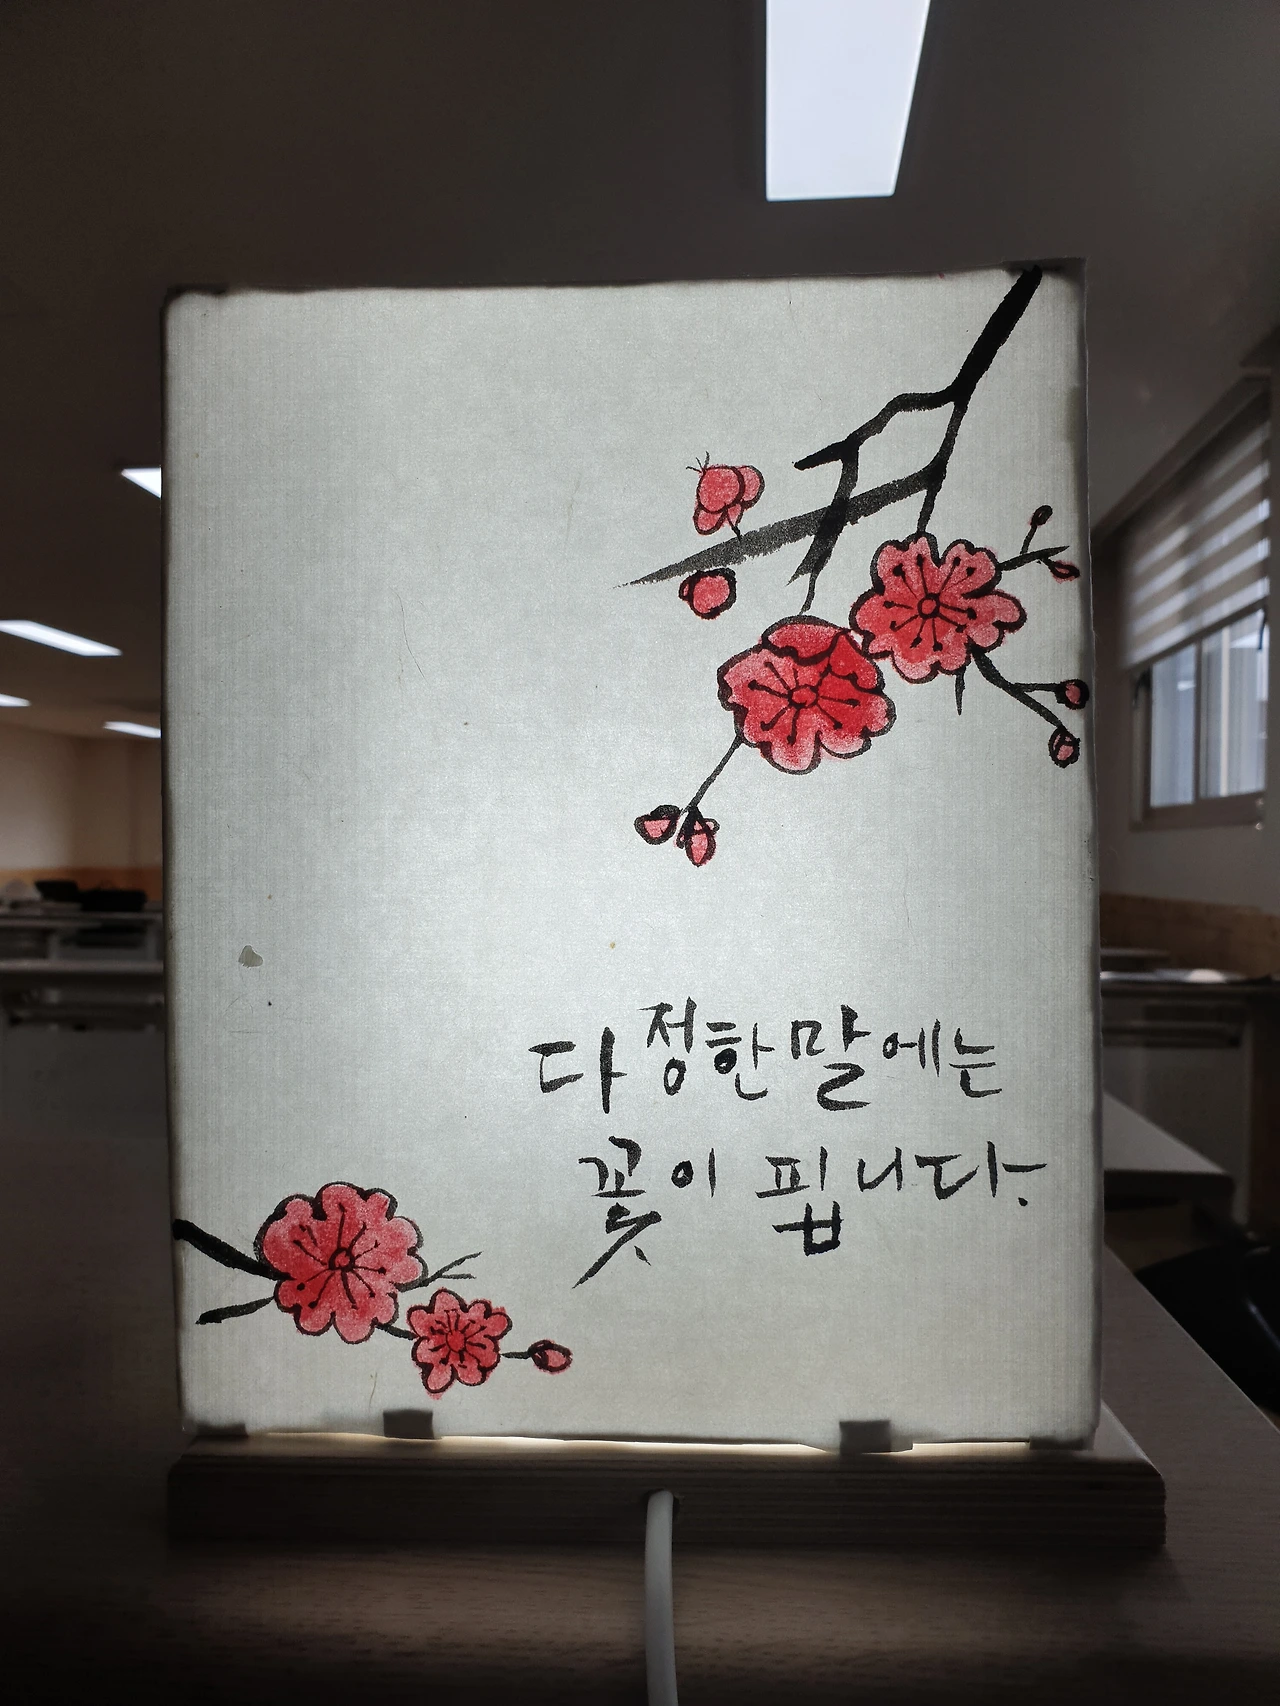 다정한 말에는
꽃이 핍니다.